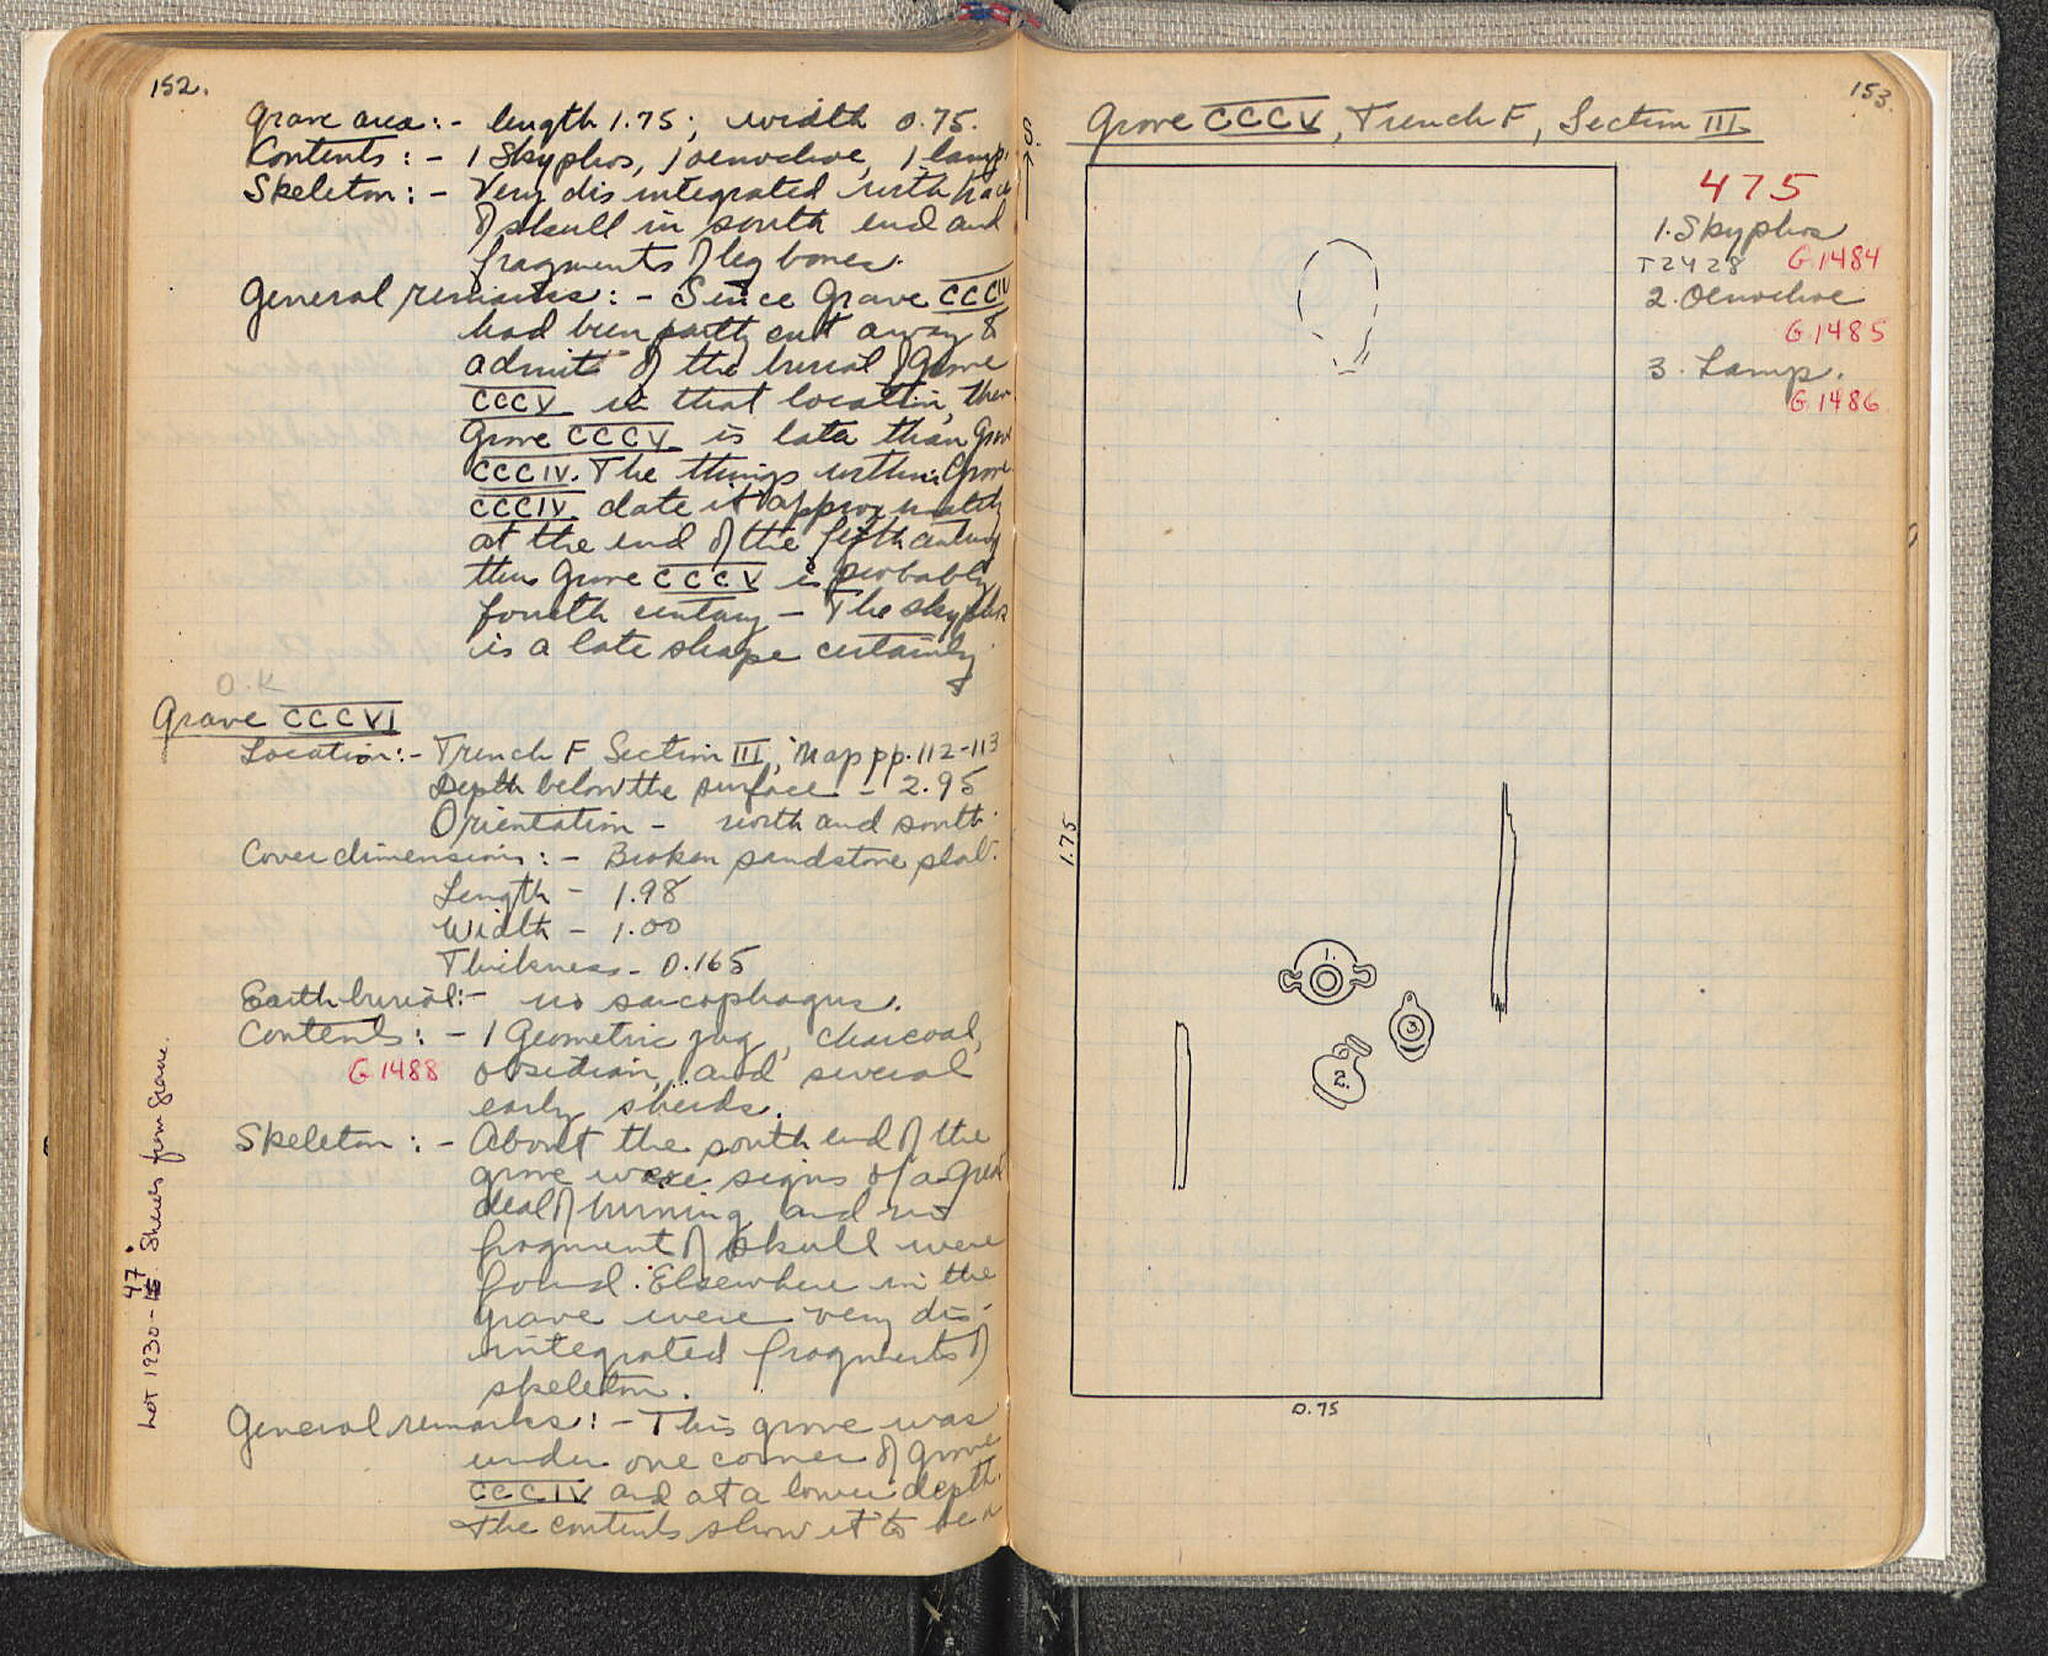 152.
Grave area:- length 1.75; width 0.75.
Contents:- 1 Skyphos, 1 oenochoe, 1 lamp.
Skeleton:- Very disintegrated with
of skull in south end and
fragments of leg bones.
General remarks:- Since Grave CCCIV
had been partly cut away to
admit of the burial of Grave
CCCV in that location, then
Grave CCCV is later than Grave
CCCIV. The things within Grave
CCCIV date it approximately
at the end of the fifth century
thus Grave CCCV is probably
fourth century - The skyphos
is a late shape certainly
O.K
Grave CCCVI
Location:- Trench F Section III, Map pp. 112-113
Depth below the surface - 2.95
Orientation - north and south.
Cover dimensions:- Broken sandstone slab.
Length - 1.98
Width - 1.00
Thickness - 0.165
Earth burial:- no sarcophagus.
Contents:- 1 Geometric jug, charcoal,
G 1488 obsidian, and several
early sherds.
Skeleton:- About the south end of the
grave were signs of a great
deal of burning and no
fragment of skull were
found. Elsewhere in the
grave were very dis-
integrated fragments of
skeleton.
General remarks:- This grave was
under one corner of grave
CCCIV and at a lower depth.
The contents show it to be a
Lot 1930-47. Sherds from grave.
153.
Grave CCCV, Trench F, Section III
S.
475
1. Skyphos
T2428 G.1484
2. Oenochoe
G.1485
3. Lamp.
G.1486
1.75
1.
3.
2.
0.75